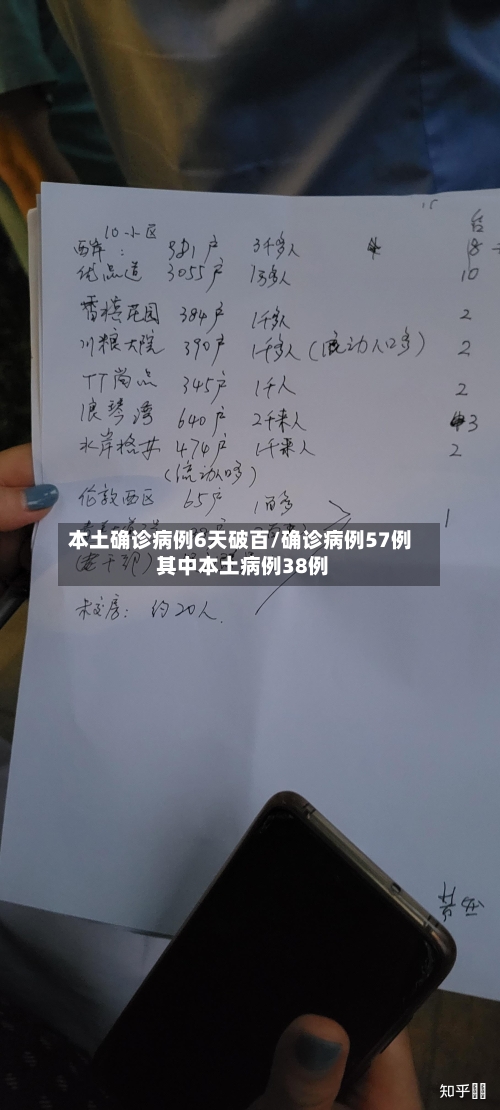 10小区 台
西岸： 981户 3千多人 18
优品道 3055户 1万多人 10
香樟花园 384户 1千多人 2
川粮大院 390户 1千多人（流动人口多） 2
TT尚点 345户 1千人 2
浪琴湾 640户 2千来人 3
水岸格林 474户 1千来人 2
（流动人口多）
伦敦西区 65户 1百多
1
本土确诊病例6天破百/确诊病例57例
其中本土病例38例
（老干部）
未交房：约20人.
知乎